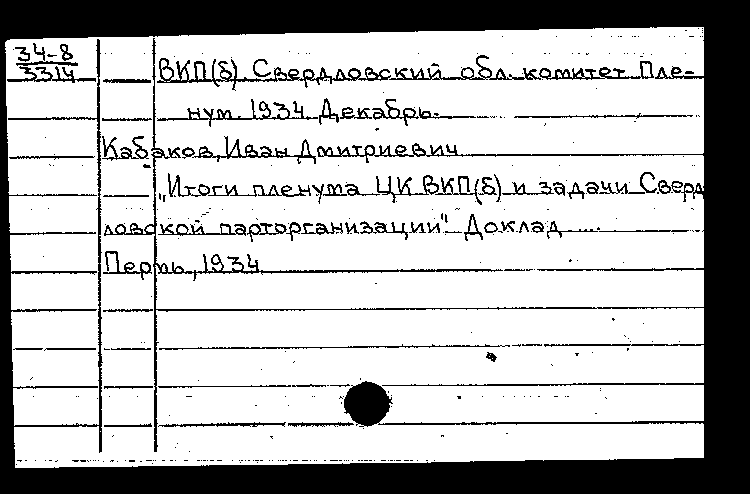 34-8
3314
ВКП(б). Свердловский обл. комитет. Пле-
нум. 1934. Декабрь.
Кабаков, Иван Дмитриевич
„Итоги пленума ЦК ВКП(б) и задачи Сверд
ловской парторганизации". Доклад ....
Пермь, 1934